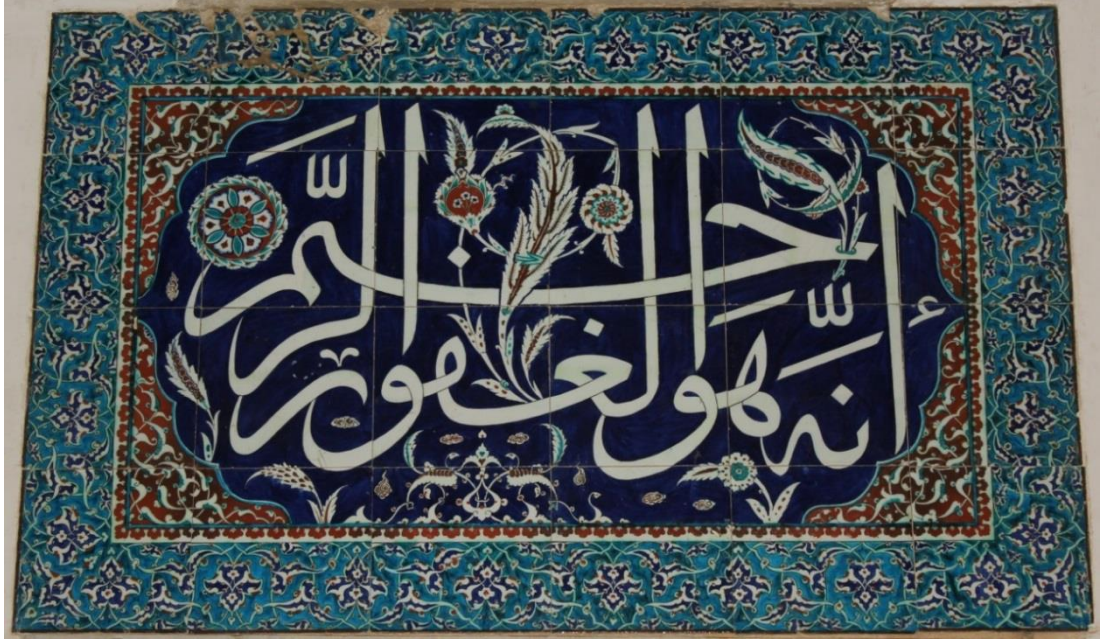 إنَّه هو الغفور الرَّحيم